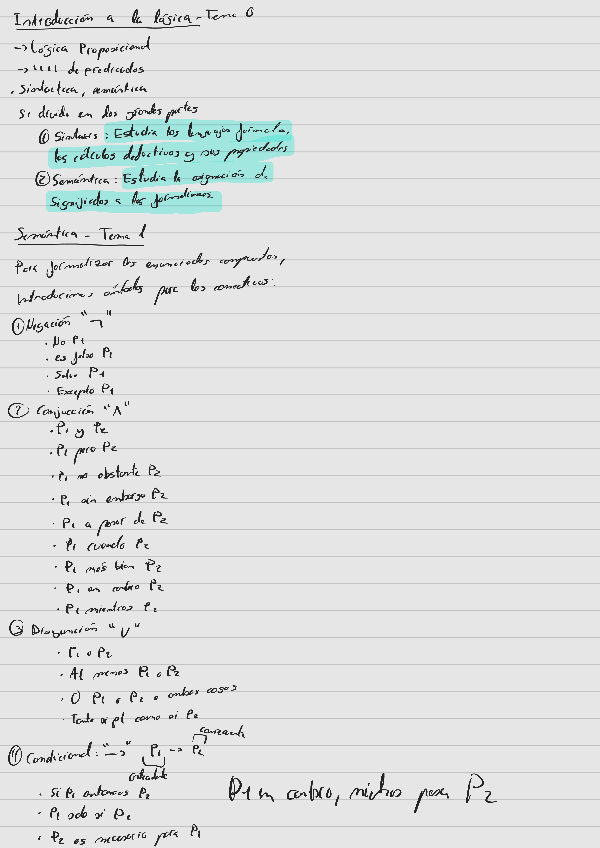 Introducción a la lógica - Tema 0
→ Lógica Proposicional
→ " " de predicados
. Sintáctica, semántica
Se divide en dos grandes partes
① Sintaxis : Estudia los lenguajes formales,
los cálculos deductivos y sus propiedades
② Semántica : Estudia la asignación de
significados a los formalismos
Semántica - Tema 1
Para formalizar los enunciados compuestos,
introducimos símbolos para las conectivas:
① Negación "¬"
· No P1
· es falso P1
· Salvo P1
· Excepto P1
② Conjunción "∧"
· P1 y P2
· P1 pero P2
· P1 no obstante P2
· P1 sin embargo P2
· P1 a pesar de P2
· P1 cuando P2
· P1 más bien P2
· P1 en cambio P2
· P1 mientras P2
③ Disyunción "∨"
· P1 o P2
· Al menos P1 o P2
· O P1 o P2 o ambas cosas
· Tanto si p1 como si P2
④ Condicional : "→" P1 → P2
· Si P1 entonces P2
· P1 solo si P2
· P2 es necesario para P1
P1 en cambio, P2